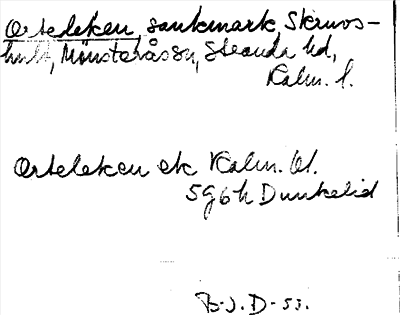 Orteleken, sankmark, Skruvs-
hult, Mönsterås sn, Stranda hd,
Kalm. l.
Orteleken ek Kalm. bl.
5g6h Dunkelid
B-J. D-53.